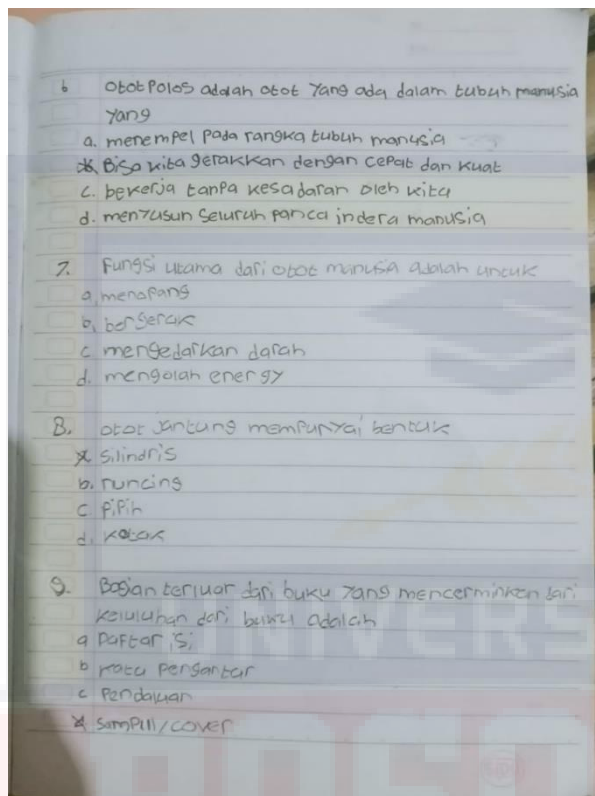 6 Otot Polos adalah otot yang ada dalam tubuh manusia
yang
a. menempel pada rangka tubuh manusia
b. Bisa kita gerakkan dengan cepat dan kuat
c. bekerja tanpa kesadaran oleh kita
d. menyusun seluruh panca indera manusia
7. Fungsi utama dari otot manusia adalah untuk
a. menopang
b. bergerak
c mengedarkan darah
d. mengolah energy
8. otot jantung mempunyai bentuk
silindris
b. runcing
c. Pipih
d. kotak
9. Bagian terluar dari buku yang mencerminkan dari
keluluhan dari buku adalah
a Daftar isi
b kata Pengantar
c Pendaluan
sampul/cover
UNIVERS